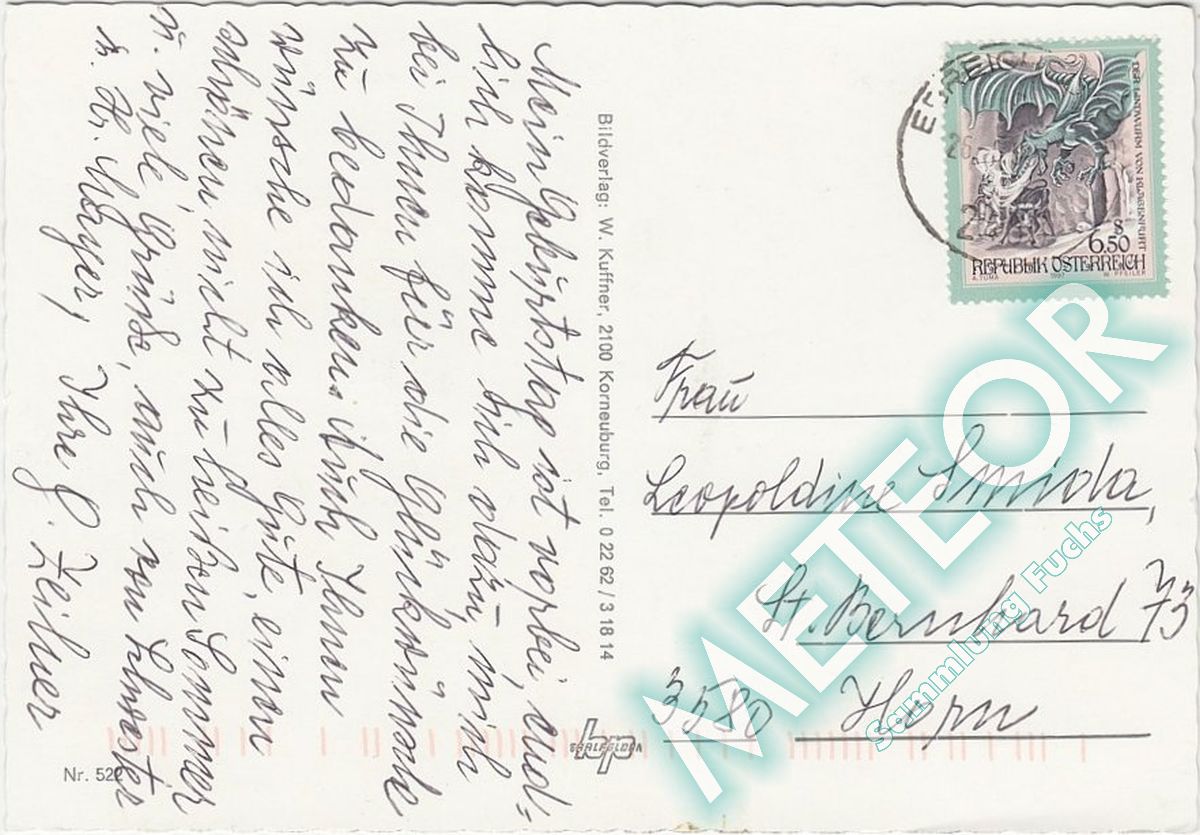 Mein Geburtstag ist vorbei, end=
lich komme ich dazu, mich
bei Ihnen für die Glückwünsche
zu bedanken. Auch Ihnen
wünsche ich alles Gute, einen
schönen, nicht zu heißen Sommer
u. viele Grüße, auch von Schwester
u. Hr. Mayer, Ihre G. Zeilner
Bildverlag: W. Kuffner, 2100 Korneuburg, Tel. 0 22 62 / 3 18 14
Nr. 522
bp
DER LINDWURM VON KLAGENFURT
S
6.50
REPUBLIK ÖSTERREICH
A. TUMA 1997 W. PFEILER
26
Frau
Leopoldine Smida,
St. Bernhard 73
3580 Horn
METEOR
Sammlung Fuchs